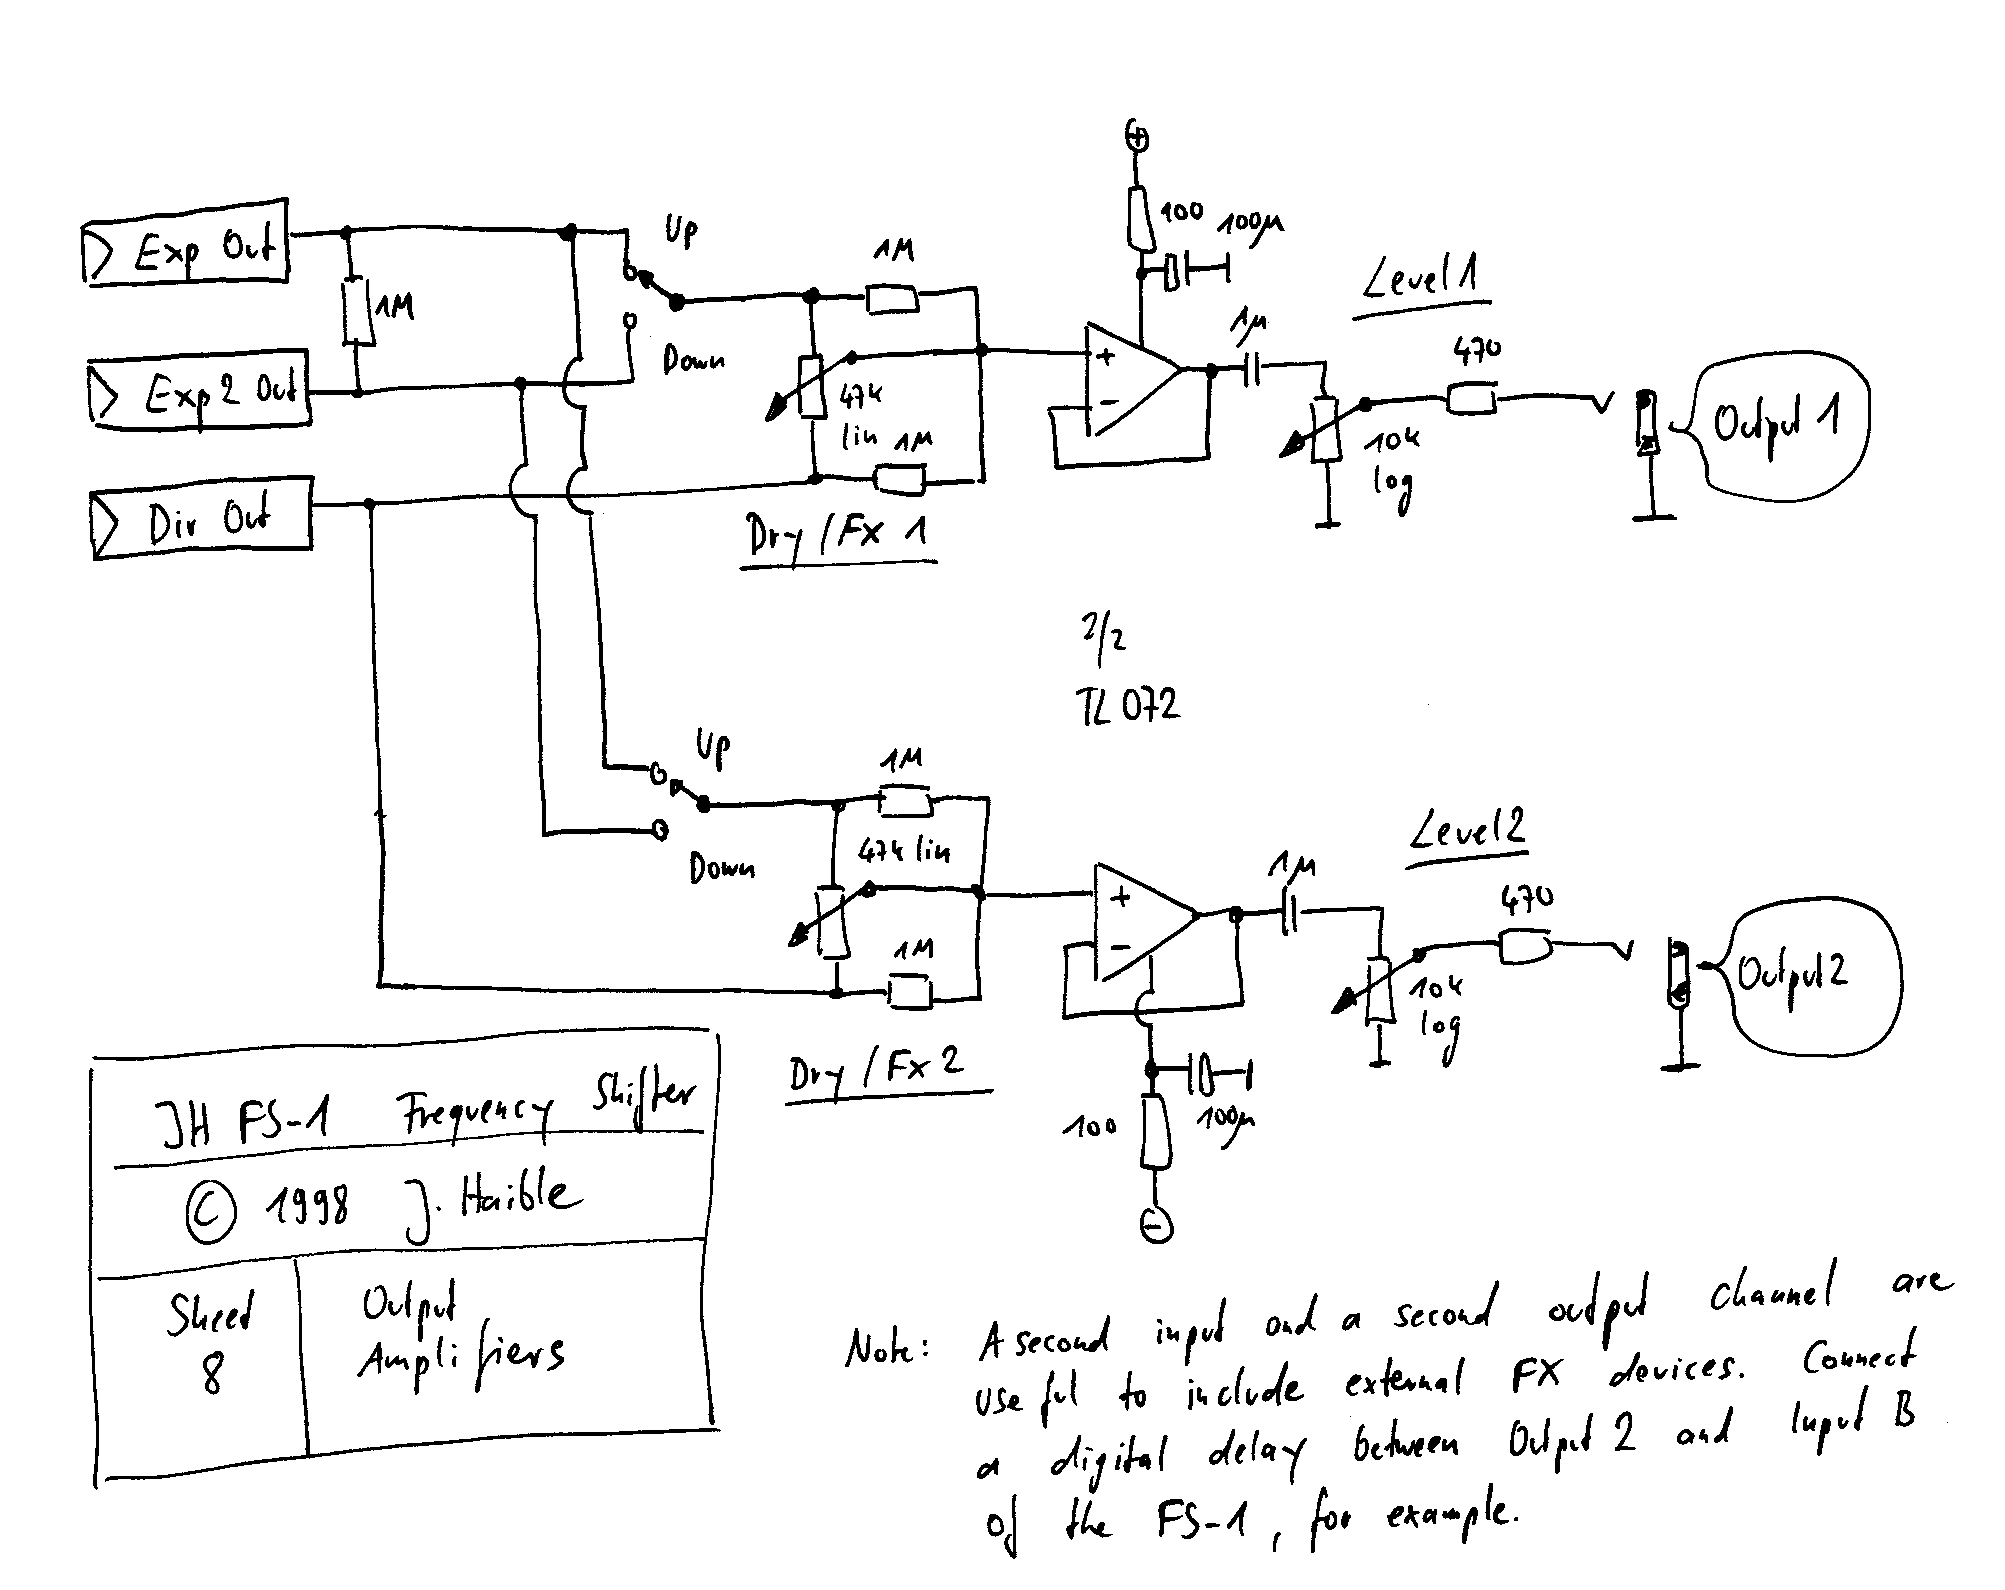 ⊕
100
100µ
Exp Out
Up
1M
1M
Level 1
1µ
470
Exp2 Out
Down
47k
lin
+
−
Output 1
10k
log
1M
Dir Out
Dry / Fx 1
2/2
TL 072
Up
1M
47k lin
Down
1M
+
−
Level 2
1µ
470
Output 2
10k
log
Dry / Fx 2
100
100µ
⊖
JH FS-1 Frequency Shifter
© 1998 J. Haible
Sheet
8
Output
Amplifiers
Note: A second input and a second output channel are
useful to include external FX devices. Connect
a digital delay between Output 2 and Input B
of the FS-1, for example.